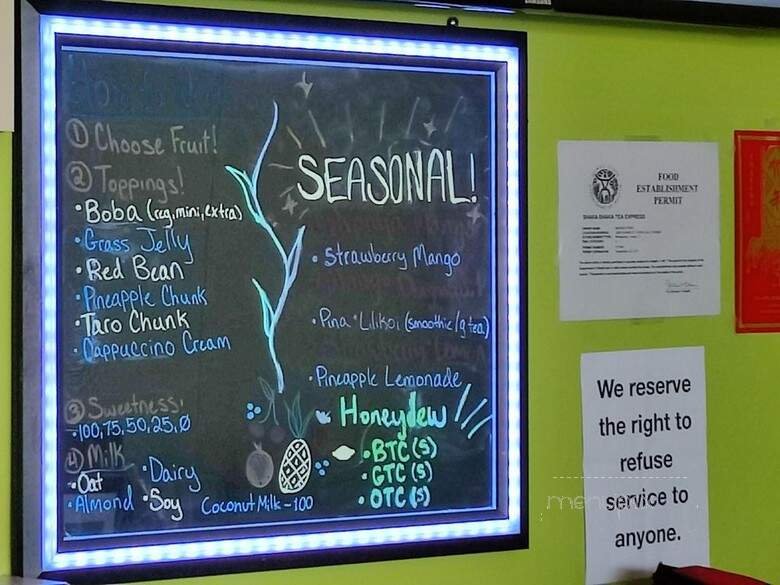 ① Choose Fruit!
② Toppings!
• Boba (reg, mini, extra)
• Grass Jelly
• Red Bean
• Pineapple Chunk
• Taro Chunk
• Cappuccino Cream
③ Sweetness:
• 100, 75, 50, 25, Ø
④ Milk
• Oat
• Dairy
• Almond
• Soy
Coconut Milk - 100
SEASONAL!
• Strawberry Mango
• Pina • Lilikoi (smoothie/g tea)
• Pineapple Lemonade
Honeydew
• BTC (s)
• GTC (s)
• OTC (s)
FOOD
ESTABLISHMENT
PERMIT
SHAKA SHAKA TEA EXPRESS
We reserve
the right to
refuse
service to
anyone.